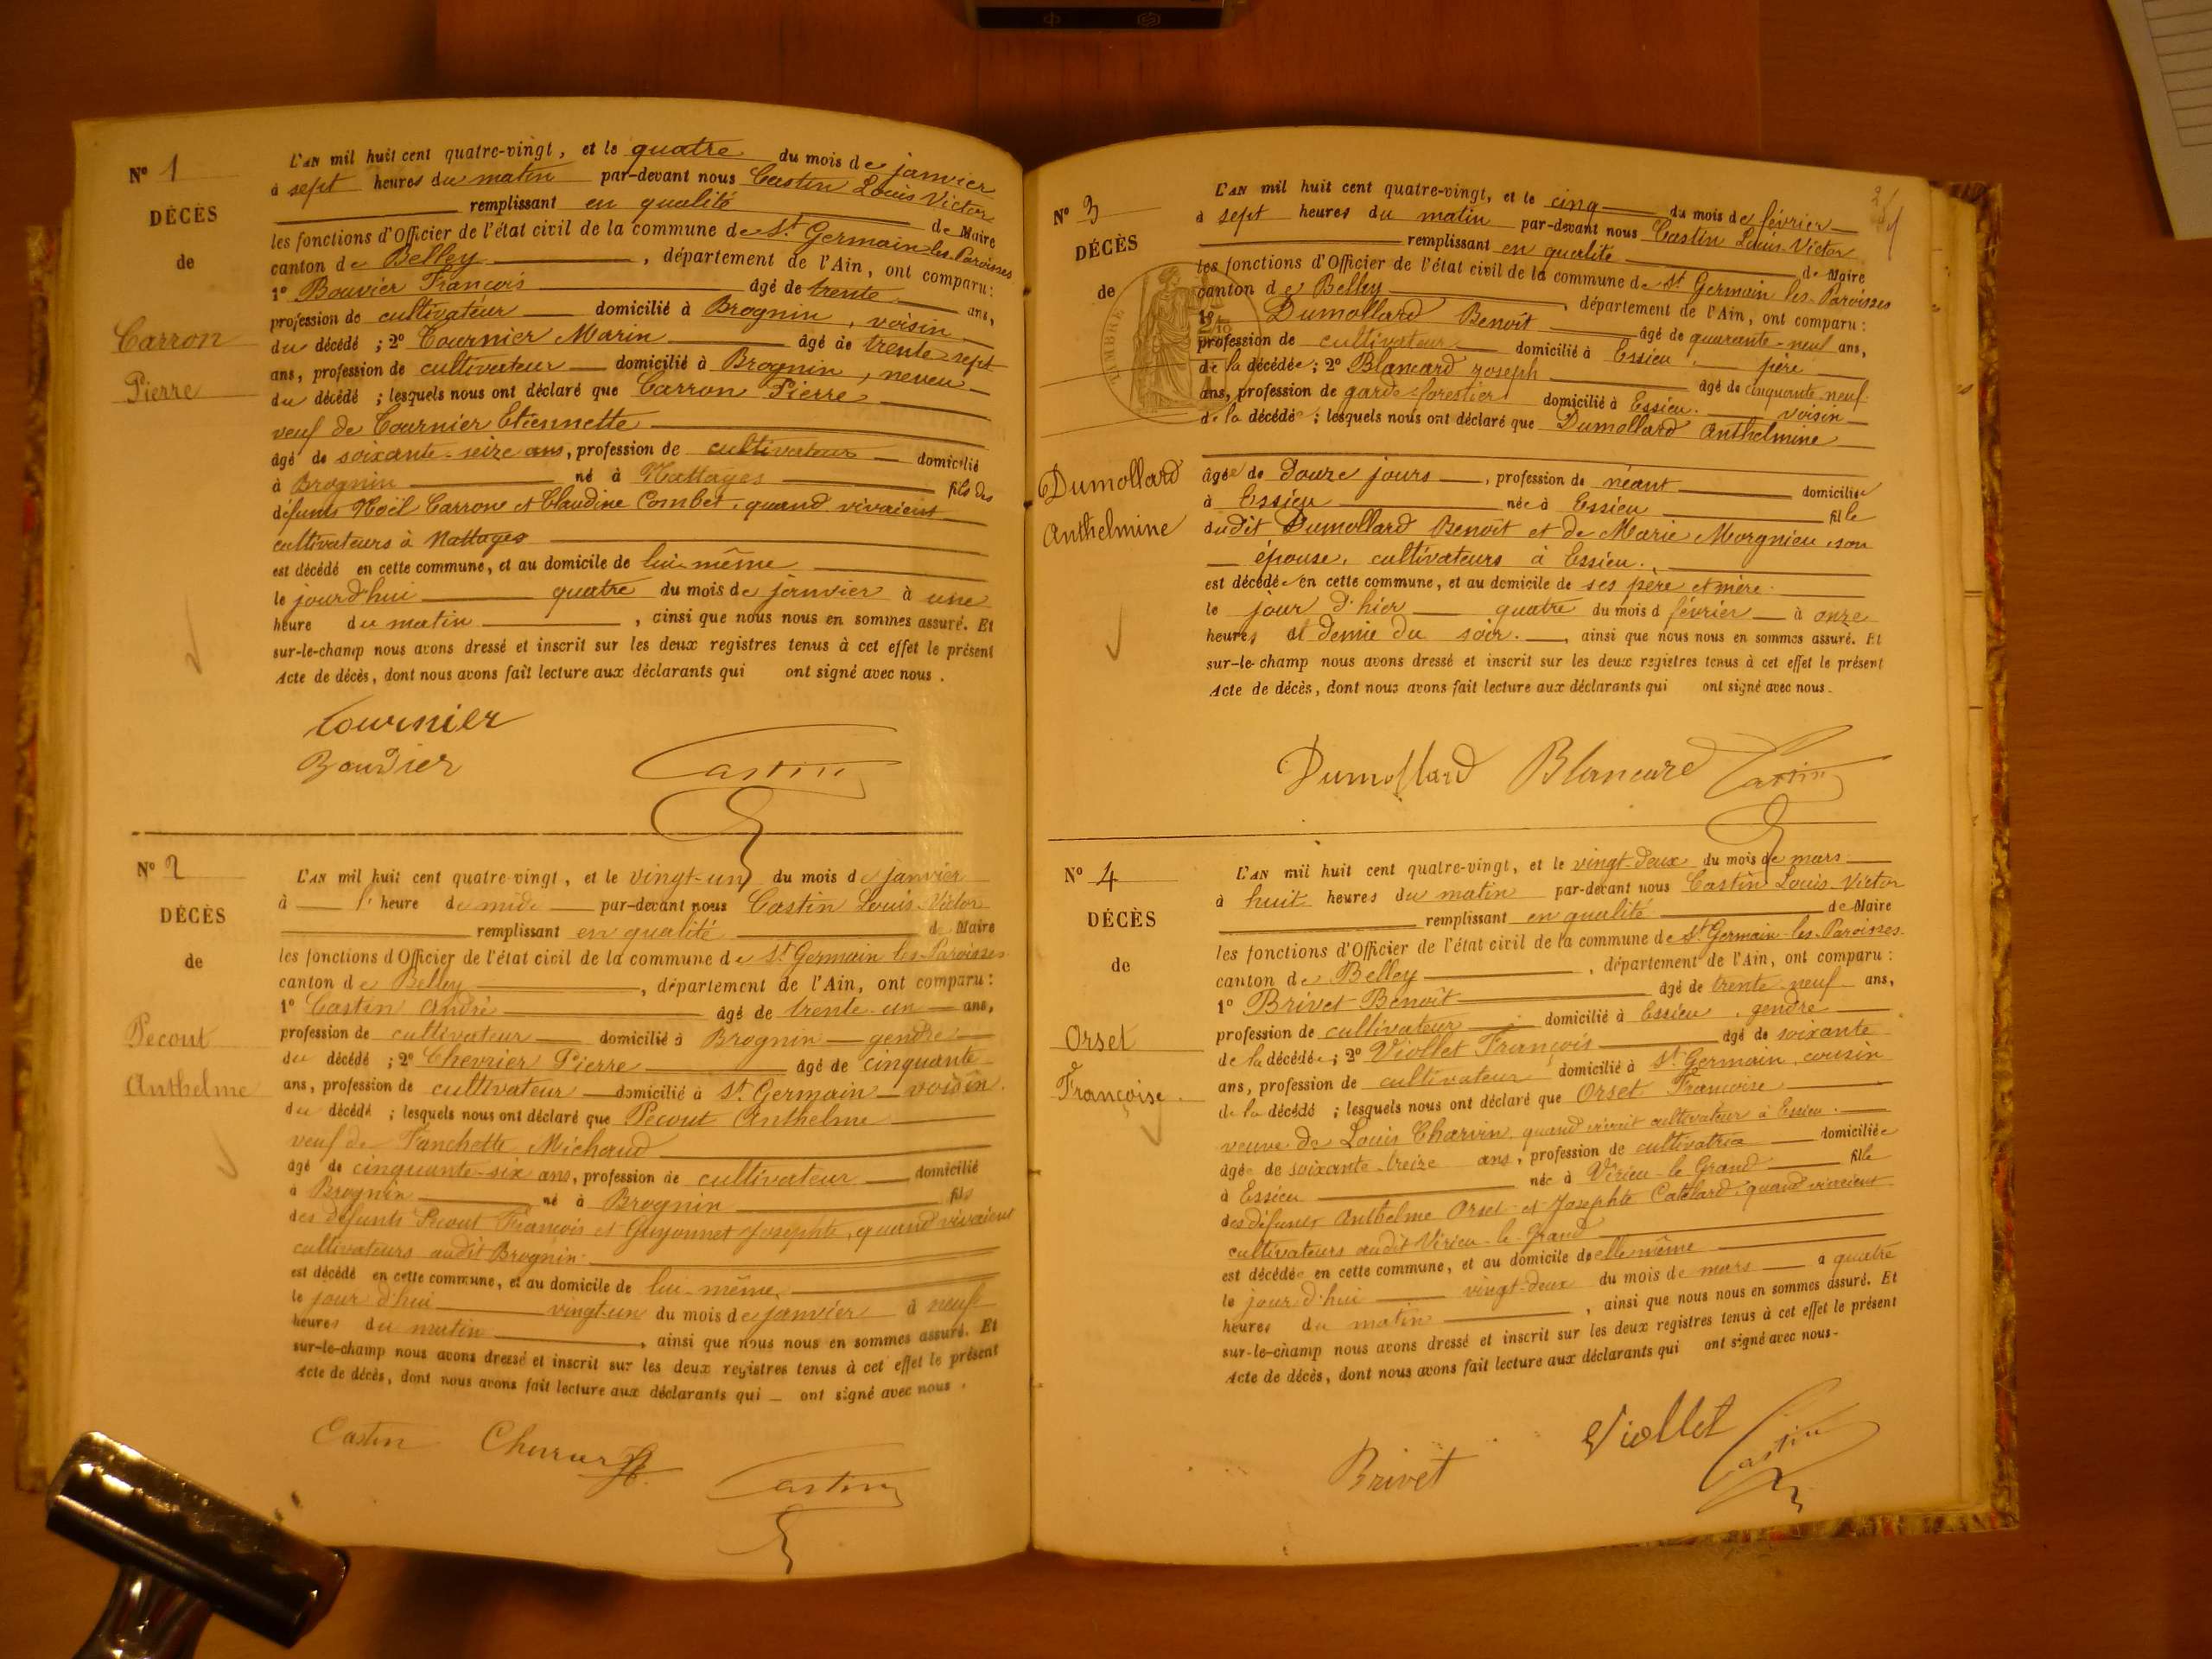 Nº 1
DÉCÈS
de
Carron
Pierre
L'AN mil huit cent quatre-vingt, et le quatre du mois de janvier
à sept heures du matin par-devant nous Castin Louis Victor
remplissant en qualité de Maire
les fonctions d'Officier de l'état civil de la commune de St Germain-les-Paroisses
canton de Belley, département de l'Ain, ont comparu:
1º Bouvier François âgé de trente ans,
profession de cultivateur domicilié à Brognin, voisin
du décédé ; 2º Tournier Marin âgé de trente-sept
ans, profession de cultivateur domicilié à Brognin, neveu
du décédé ; lesquels nous ont déclaré que Carron Pierre
veuf de Tournier Etiennette
âgé de soixante-seize ans, profession de cultivateur domicilié
à Brognin né à Nattages fils des
défunts Noël Carron et Claudine Combet, quand vivaient
cultivateurs à Nattages
est décédé en cette commune, et au domicile de lui-même
le jourd'hui quatre du mois de janvier à une
heure du matin, ainsi que nous nous en sommes assuré. Et
sur-le-champ nous avons dressé et inscrit sur les deux registres tenus à cet effet le présent
Acte de décès, dont nous avons fait lecture aux déclarants qui ont signé avec nous.
Tournier
Bouvier
Castin
Nº 2
DÉCÈS
de
Pecout
Anthelme
L'AN mil huit cent quatre-vingt, et le vingt-un du mois de janvier
à l'heure de midi par-devant nous Castin Louis-Victor
remplissant en qualité de Maire
les fonctions d'Officier de l'état civil de la commune de St Germain les-Paroisses
canton de Belley, département de l'Ain, ont comparu:
1º Castin André âgé de trente-un ans,
profession de cultivateur domicilié à Brognin gendre
du décédé ; 2º Chevrier Pierre âgé de cinquante
ans, profession de cultivateur domicilié à St Germain voisin.
du décédé ; lesquels nous ont déclaré que Pecout Anthelme
veuf de Fanchette Michaud
âgé de cinquante-six ans, profession de cultivateur domicilié
à Brognin né à Brognin fils
des défunts Pecout François et Guyonnet Josephte, quand vivaient
cultivateurs audit Brognin.
est décédé en cette commune, et au domicile de lui-même,
le jour d'hui vingt-un du mois de janvier à neuf
heures du matin, ainsi que nous nous en sommes assuré. Et
sur-le-champ nous avons dressé et inscrit sur les deux registres tenus à cet effet le présent
Acte de décès, dont nous avons fait lecture aux déclarants qui ont signé avec nous.
Castin
Castin
Nº 3
DÉCÈS
de
TIMBRE
Dumollard
Anthelmine
L'AN mil huit cent quatre-vingt, et le cinq du mois de février
à sept heures du matin par-devant nous Castin Louis-Victor
remplissant en qualité de Maire
les fonctions d'Officier de l'état civil de la commune de St Germain les-Paroisses
canton de Belley, département de l'Ain, ont comparu:
1º Dumollard Benoît âgé de quarante-neuf ans,
profession de cultivateur domicilié à Essieu, père
de la décédée ; 2º Blancard Joseph âgé de cinquante-neuf
ans, profession de garde-forestier domicilié à Essieu. voisin
de la décédé ; lesquels nous ont déclaré que Dumollard Anthelmine
âgée de douze jours, profession de néant domiciliée
à Essieu née à Essieu fille
dudit Dumollard Benoît et de Marie Morgnieu, son
épouse, cultivateurs à Essieu.
est décédée en cette commune, et au domicile de ses père et mère.
le jour d'hier quatre du mois d février à onze
heures et demie du soir., ainsi que nous nous en sommes assuré. Et
sur-le-champ nous avons dressé et inscrit sur les deux registres tenus à cet effet le présent
Acte de décès, dont nous avons fait lecture aux déclarants qui ont signé avec nous.
Dumollard Blancard Castin
Nº 4
DÉCÈS
de
Orset
Françoise
L'AN mil huit cent quatre-vingt, et le vingt-deux du mois de mars
à huit heures du matin par-devant nous Castin Louis-Victor
remplissant en qualité de Maire
les fonctions d'Officier de l'état civil de la commune de St Germain-les-Paroisses
canton de Belley, département de l'Ain, ont comparu:
1º Brivet Benoît âgé de trente-neuf ans,
profession de cultivateur domicilié à Essieu, gendre
de la décédée ; 2º Viollet François âgé de soixante
ans, profession de cultivateur domicilié à St Germain, cousin
de la décédé ; lesquels nous ont déclaré que Orset Françoise
veuve de Louis Charvin, quand vivait cultivateur à Essieu.
âgée de soixante-treize ans, profession de cultivatrice domiciliée
à Essieu née à Virieu-le-Grand fille
des défunts Anthelme Orset et Josephte Catelard, quand vivaient
cultivateurs audit Virieu-le-Grand
est décédée en cette commune, et au domicile de elle-même
le jour d'hui vingt-deux du mois de mars à quatre
heures du matin, ainsi que nous nous en sommes assuré. Et
sur-le-champ nous avons dressé et inscrit sur les deux registres tenus à cet effet le présent
Acte de décès, dont nous avons fait lecture aux déclarants qui ont signé avec nous.
Brivet Viollet Castin